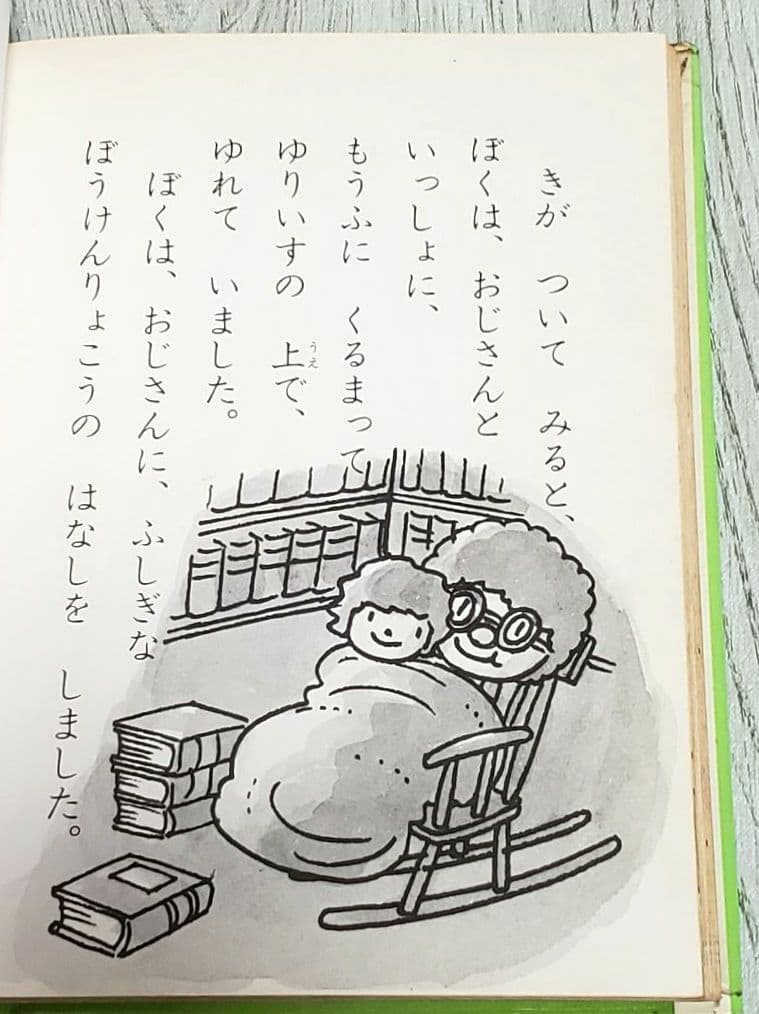 きが ついて みると、
ぼくは、おじさんと
いっしょに、
もうふに くるまって
ゆりいすの 上で、
ゆれて いました。
ぼくは、おじさんに、ふしぎな
ぼうけんりょこうの はなしを しました。